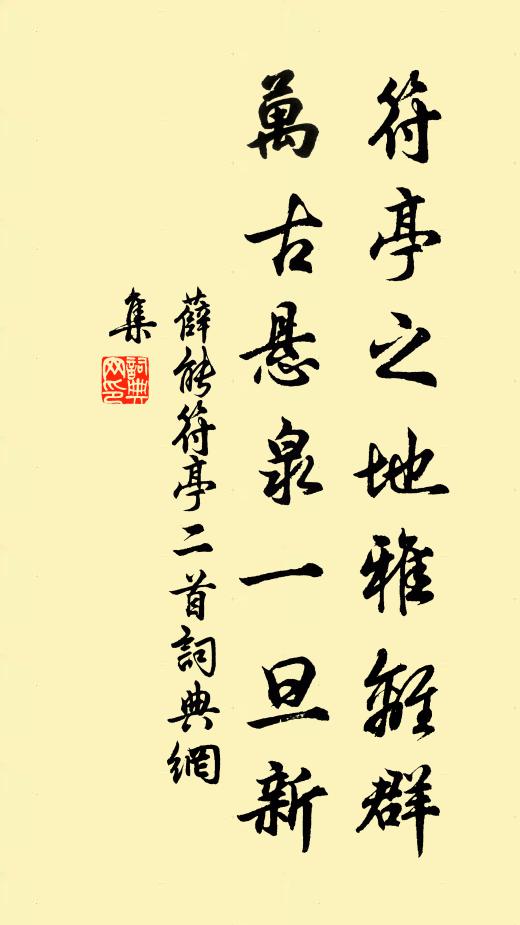 符亭之地雅離群
萬古懸泉一旦新
薛能符亭二首詞典網
集
詞典网印